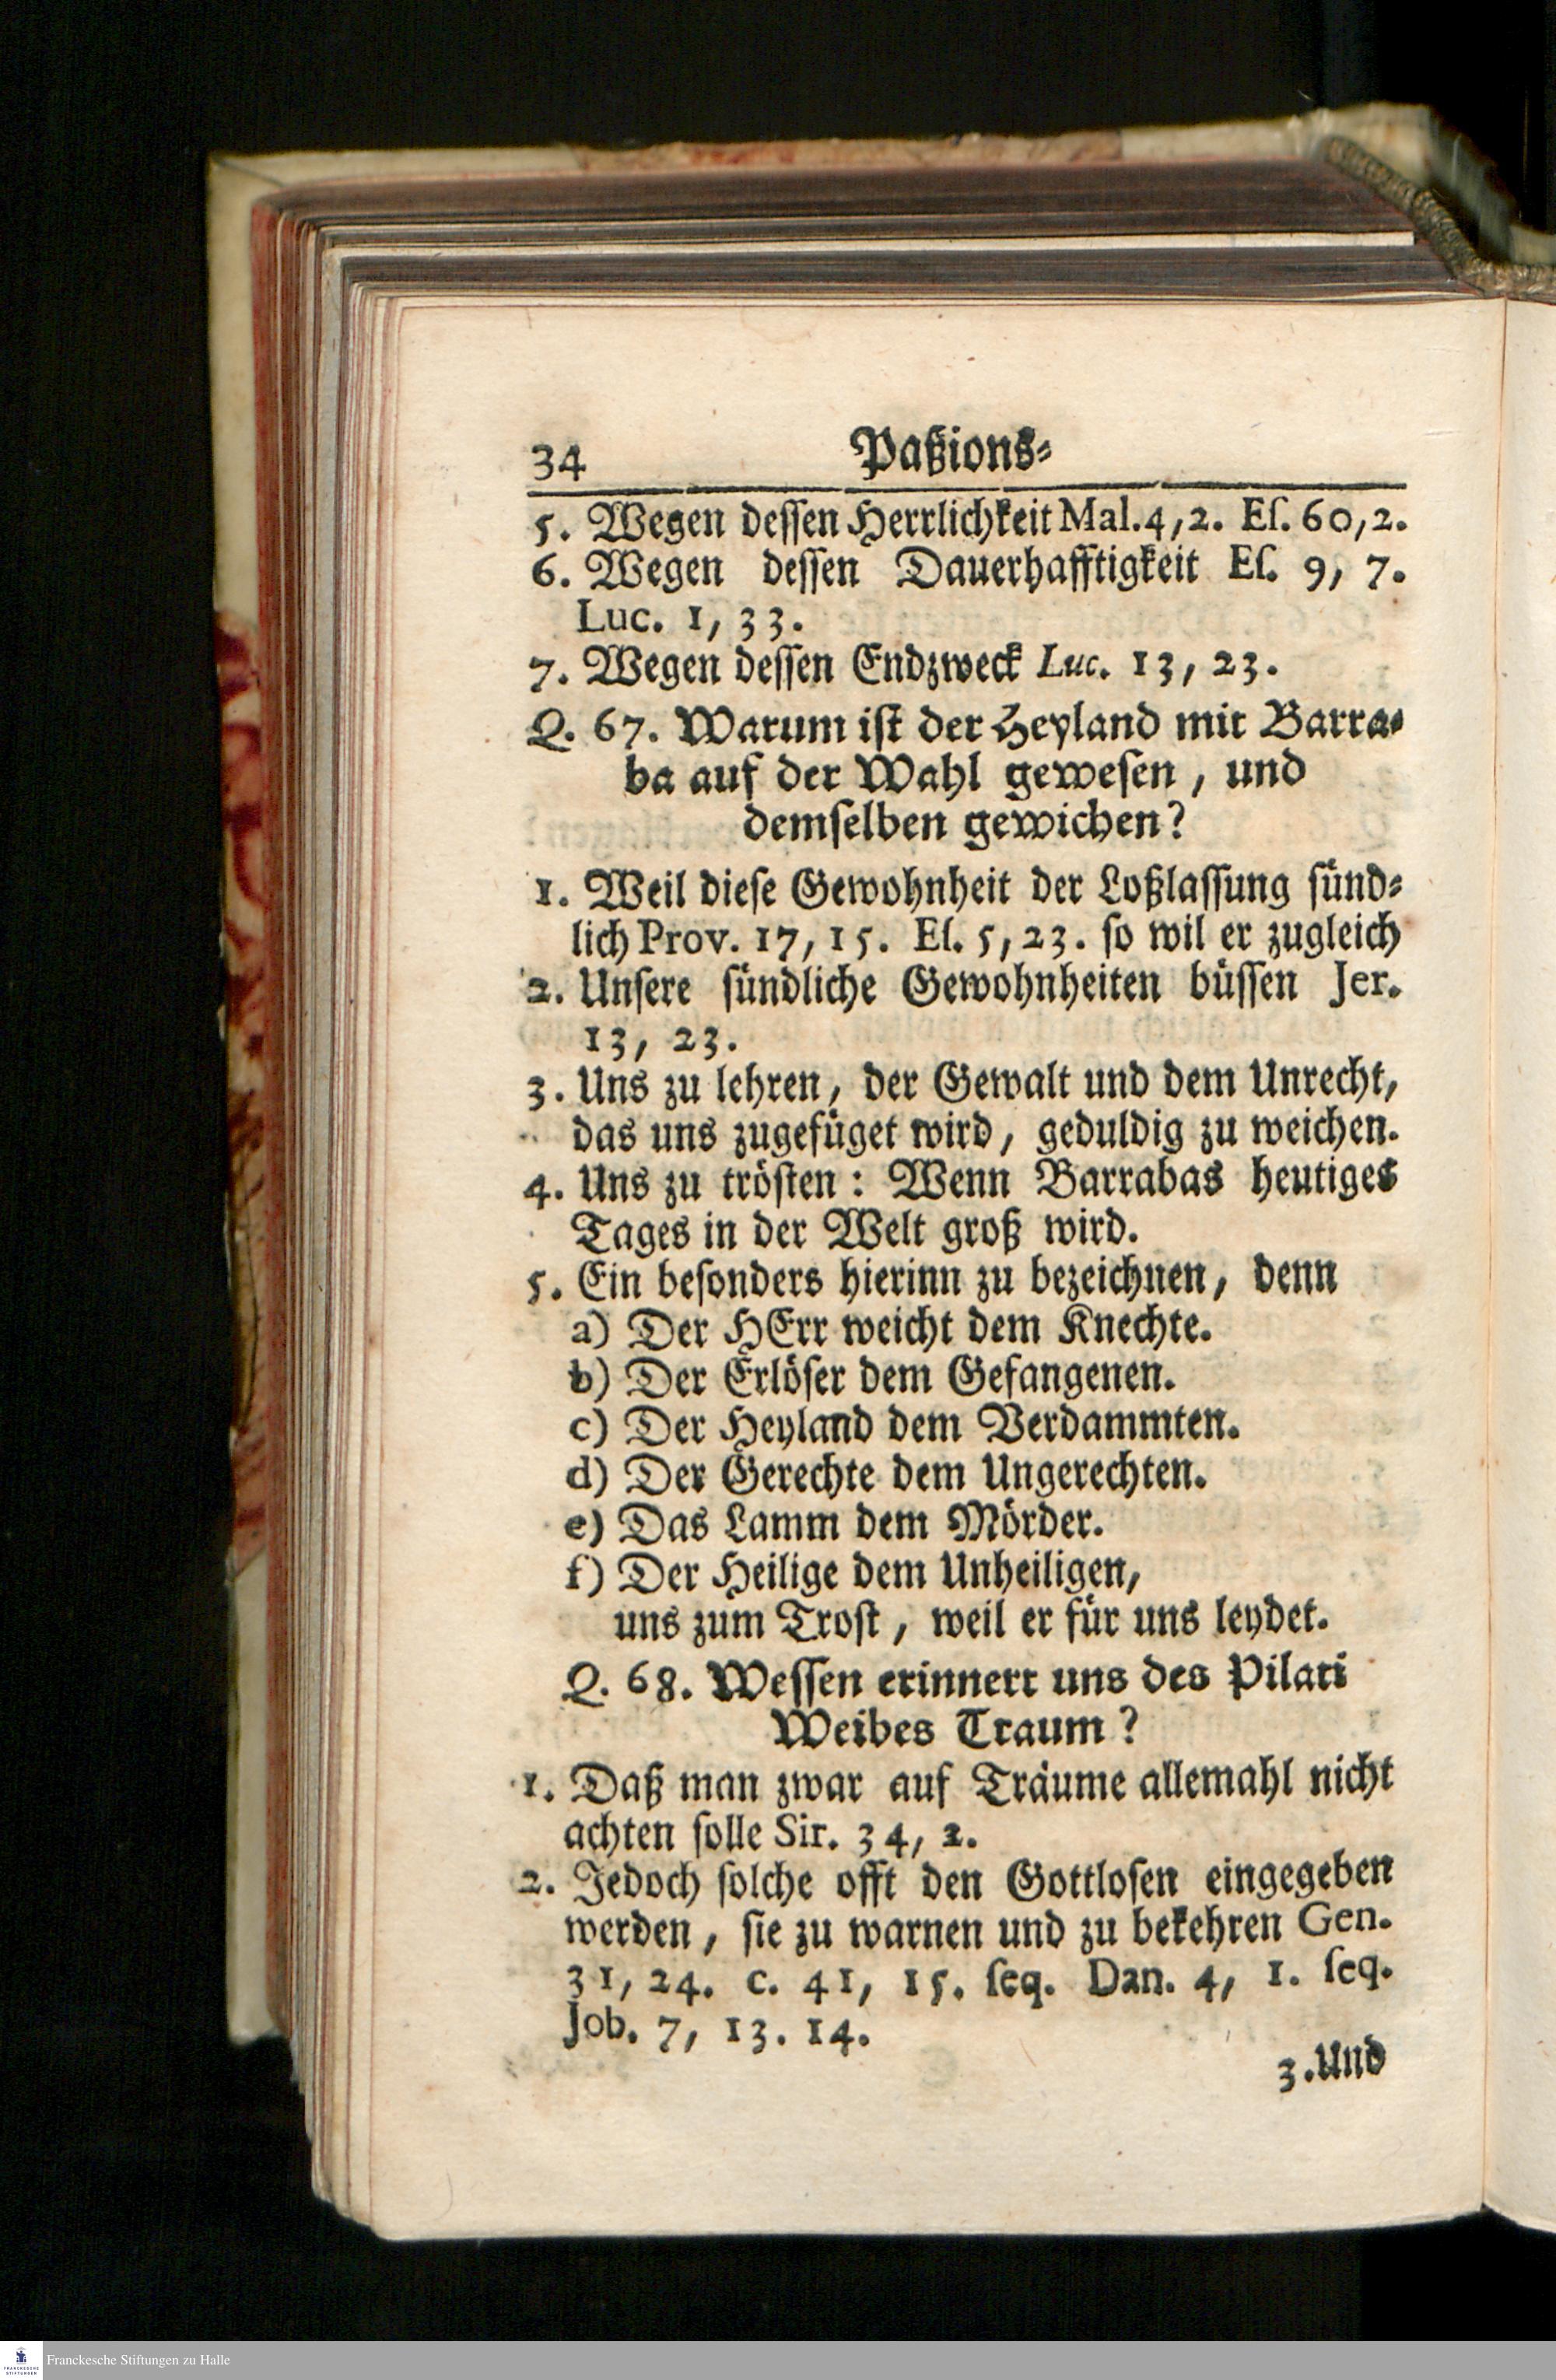 34 Paßions-
5. Wegen dessen Herrlichkeit Mal. 4, 2. Es. 60, 2.
6. Wegen dessen Dauerhafftigkeit Es. 9, 7.
Luc. 1, 33.
7. Wegen dessen Endzweck Luc. 13, 23.
Q. 67. Warum ist der Heyland mit Barra-
ba auf der Wahl gewesen, und
demselben gewichen?
1. Weil diese Gewohnheit der Loßlassung sünd-
lich Prov. 17, 15. El. 5, 23. so wil er zugleich
2. Unsere sündliche Gewohnheiten büssen Jer.
13, 23.
3. Uns zu lehren, der Gewalt und dem Unrecht,
das uns zugefüget wird, geduldig zu weichen.
4. Uns zu trösten: Wenn Barrabas heutiges
Tages in der Welt groß wird.
5. Ein besonders hierinn zu bezeichnen, denn
a) Der HErr weicht dem Knechte.
b) Der Erlöser dem Gefangenen.
c) Der Heyland dem Verdammten.
d) Der Gerechte dem Ungerechten.
e) Das Lamm dem Mörder.
f) Der Heilige dem Unheiligen,
uns zum Trost, weil er für uns leydet.
Q. 68. Wessen erinnert uns des Pilati
Weibes Traum?
1. Daß man zwar auf Träume allemahl nicht
achten solle Sir. 34, 2.
2. Jedoch solche offt den Gottlosen eingegeben
werden, sie zu warnen und zu bekehren Gen.
31, 24. c. 41, 15. seq. Dan. 4, 1. seq.
Job. 7, 13. 14.
3. Und
FRANCKESCHE STIFTUNGEN
Franckesche Stiftungen zu Halle